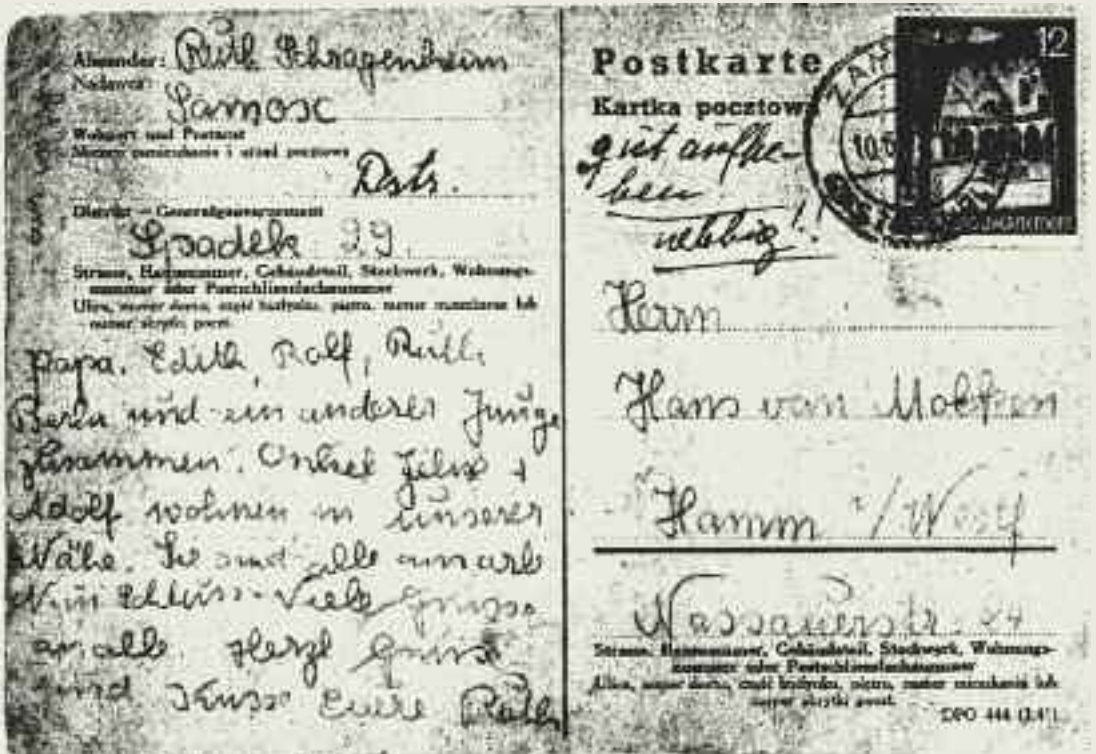 Absender: Ruth Schragenheim
Nadawca:
Samosc
Wohnort und Postamt
Miejsce zamieszkania i urząd pocztowy
Dstr.
Distrikt — Generalgouvernement
99.
Strasse, Hausnummer, Gebäudeteil, Stockwerk, Wohnungs-
nummer oder Postschliessfachnummer
Ulica, numer domu, część budynku, piętro, numer mieszkania lub
numer skrytki poczt.
Papa, Edith, Rolf, Ruth
und ein anderer Junge
zusammen. Onkel +
Adolf wohnen in unserer
Nähe. Sie sind alle
Nun Schluss. Viele Grüsse
an alle. Herzl Grüsse
und Kuss Eure Ruth
Postkarte
Kartka pocztowa
gut aufhe-
ben
12
10.
Herrn
Hans von
Hamm i/Westf
Nassauerstr. 24
Strasse, Hausnummer, Gebäudeteil, Stockwerk, Wohnungs-
nummer oder Postschliessfachnummer
Ulica, numer domu, część budynku, piętro, numer mieszkania lub
numer skrytki poczt.
DPO 444